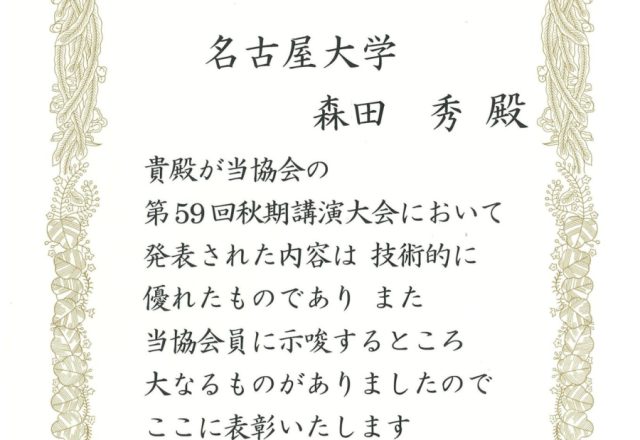 名古屋大学
森田 秀 殿
貴殿が当協会の
第59回秋期講演大会において
発表された内容は 技術的に
優れたものであり また
当協会員に示唆するところ
大なるものがありましたので
ここに表彰いたします